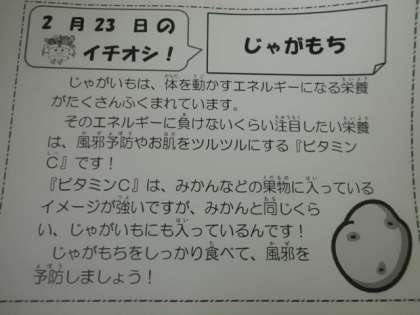 2月23日の
イチオシ!
じゃがもち
じゃがいもは、体を動かすエネルギーになる栄養
がたくさんふくまれています。
そのエネルギーに負けないくらい注目したい栄養
は、風邪予防やお肌をツルツルにする『ビタミン
C』です!
『ビタミンC』は、みかんなどの果物に入っている
イメージが強いですが、みかんと同じくら
い、じゃがいもにも入っているんです!
じゃがもちをしっかり食べて、風邪を
予防しましょう!